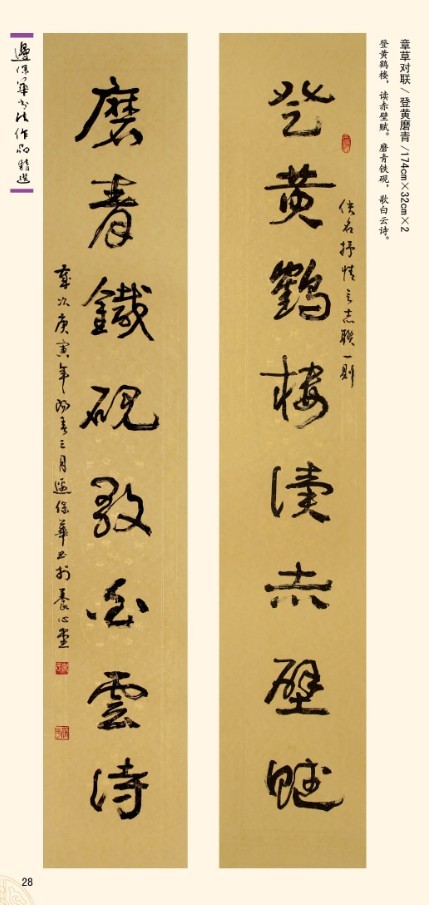 章草对联/登黄磨青/174cm×32cm×2
登黄鹤楼，读赤壁赋。磨青铁砚，歌白云诗。
登黄鹤楼读赤壁赋
佚名抒情言志联一则
磨青鐵硯歌白雲诗
歲次庚寅年阳春三月邊保華书於養心堂
邊保華书法作品精选
28